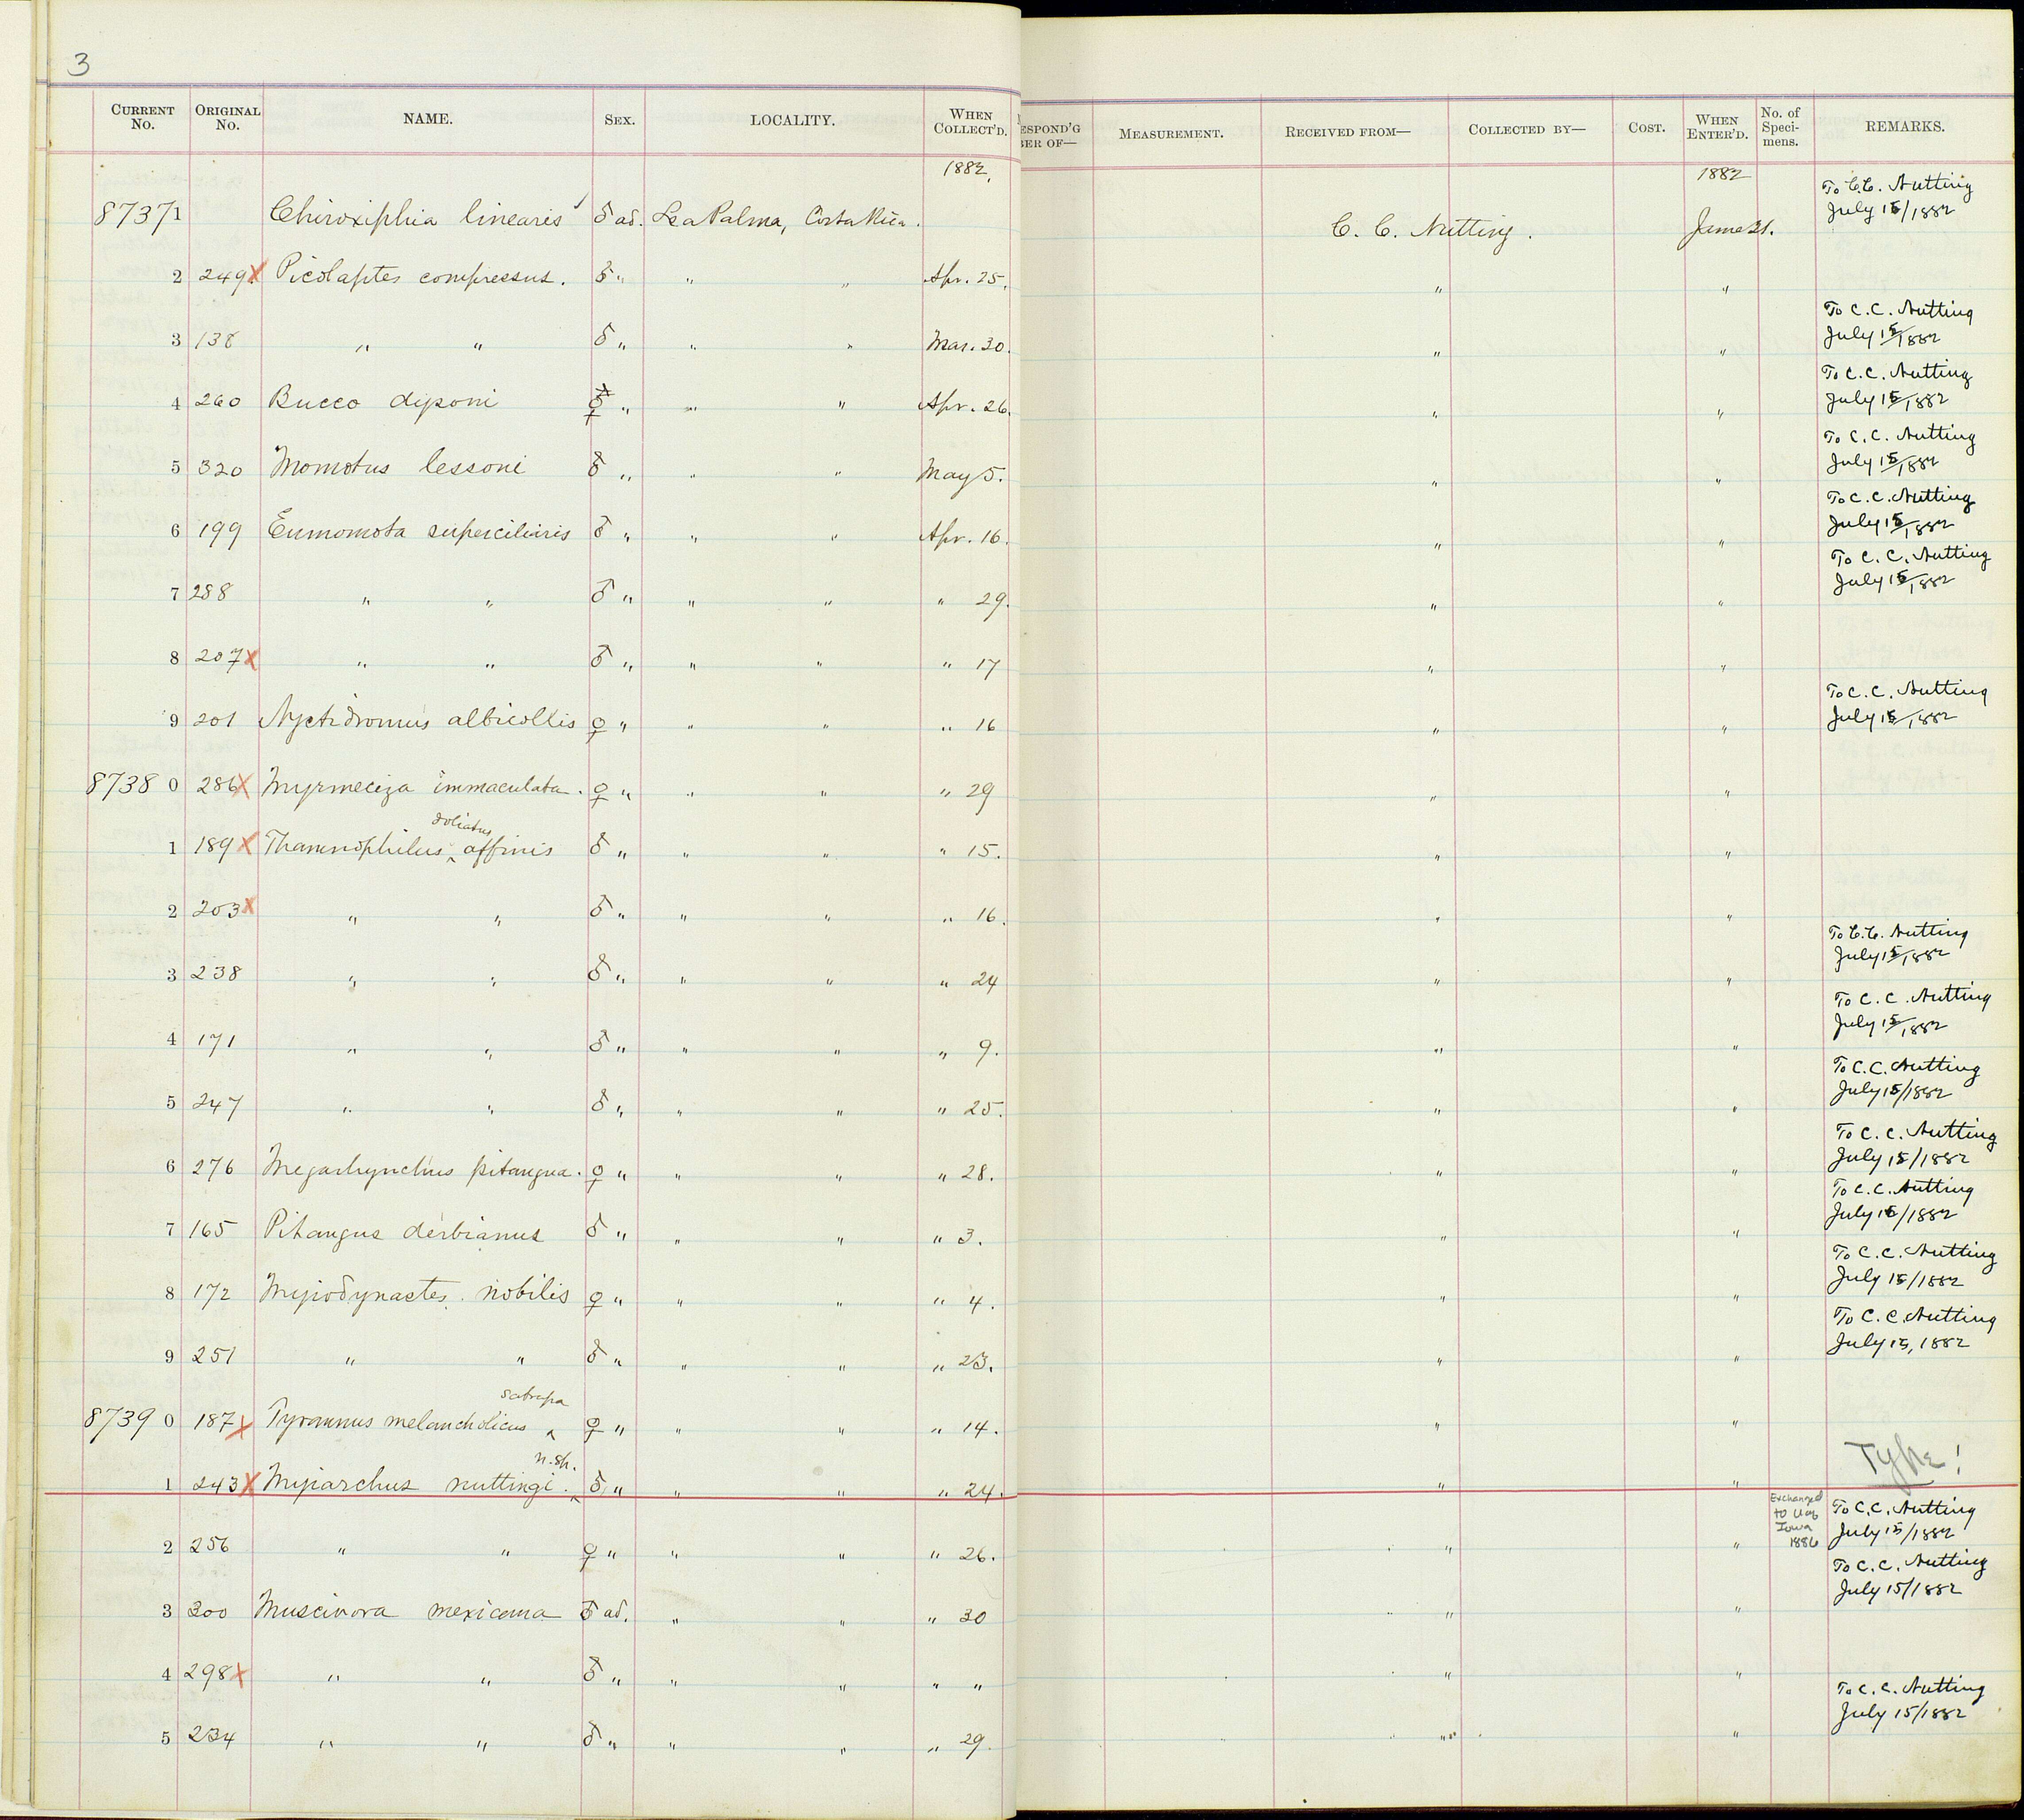 3
CURRENT No. ORIGINAL No. NAME. SEX. LOCALITY. WHEN COLLECT'D. ESPOND'G BER OF— MEASUREMENT. RECEIVED FROM— COLLECTED BY— COST. WHEN ENTER'D. No. of Speci-mens. REMARKS.
1882, 1882
87371 Chiroxiphia linearis ♂ ad. La Palma, Costa Rica. C. C. Nutting. June 21. To C.C. Nutting July 15/1882
2 249 X Picolaptes compressus. ♂ " " " Apr. 25. " "
3 138 " " ♂ " " " Mar. 30. " " To C.C. Nutting July 15/1882
4 260 Bucco dysoni ♀ " " " Apr. 26. " " To C.C. Nutting July 15/1882
5 320 Momotus lessoni ♂ " " " May 5. " " To C.C. Nutting July 15/1882
6 199 Eumomota superciliaris ♂ " " " Apr. 16. " " To C.C. Nutting July 15/1882
7 288 " " ♂ " " " " 29. " " To C.C. Nutting July 15/1882
8 207 X " " ♂ " " " " 17 " "
9 201 Nyctidromus albicollis ♀ " " " " 16 " " To C.C. Nutting July 15/1882
8738 0 286 X Myrmeciza immaculata. ♀ " " " " 29 " "
doliatus
1 189 X Thamnophilus ‸ affinis ♂ " " " " 15. " "
2 203 X " " ♂ " " " " 16. " "
3 238 " " ♂ " " " " 24 " " To C.C. Nutting July 15/1882
4 171 " " ♂ " " " " 9. " " To C.C. Nutting July 15/1882
5 247 " " ♂ " " " " 25. " " To C.C. Nutting July 15/1882
6 276 Megarhynchus pitangua. ♀ " " " " 28. " " To C.C. Nutting July 15/1882
7 165 Pitangus derbianus ♂ " " " " 3. " " To C.C. Nutting July 15/1882
8 172 Myiodynastes nobilis ♀ " " " " 4. " " To C.C. Nutting July 15/1882
9 251 " " ♂ " " " " 23. " " To C.C. Nutting July 15, 1882
satrapa
8739 0 187 X Tyrannus melancholicus ‸ ♀ " " " " 14. " "
n. sp.
1 243 X Myiarchus nuttingi. ‸ ♂ " " " " 24. " " Type!
2 256 " " ♀ " " " " 26. " " Exchanged to Iowa 1886 To C.C. Nutting July 15/1882
3 300 Muscivora mexicana ♂ ad. " " " 30 " " To C.C. Nutting July 15/1882
4 298 X " " ♂ " " " " " " "
5 234 " " ♂ " " " " 29. " " To C.C. Nutting July 15/1882